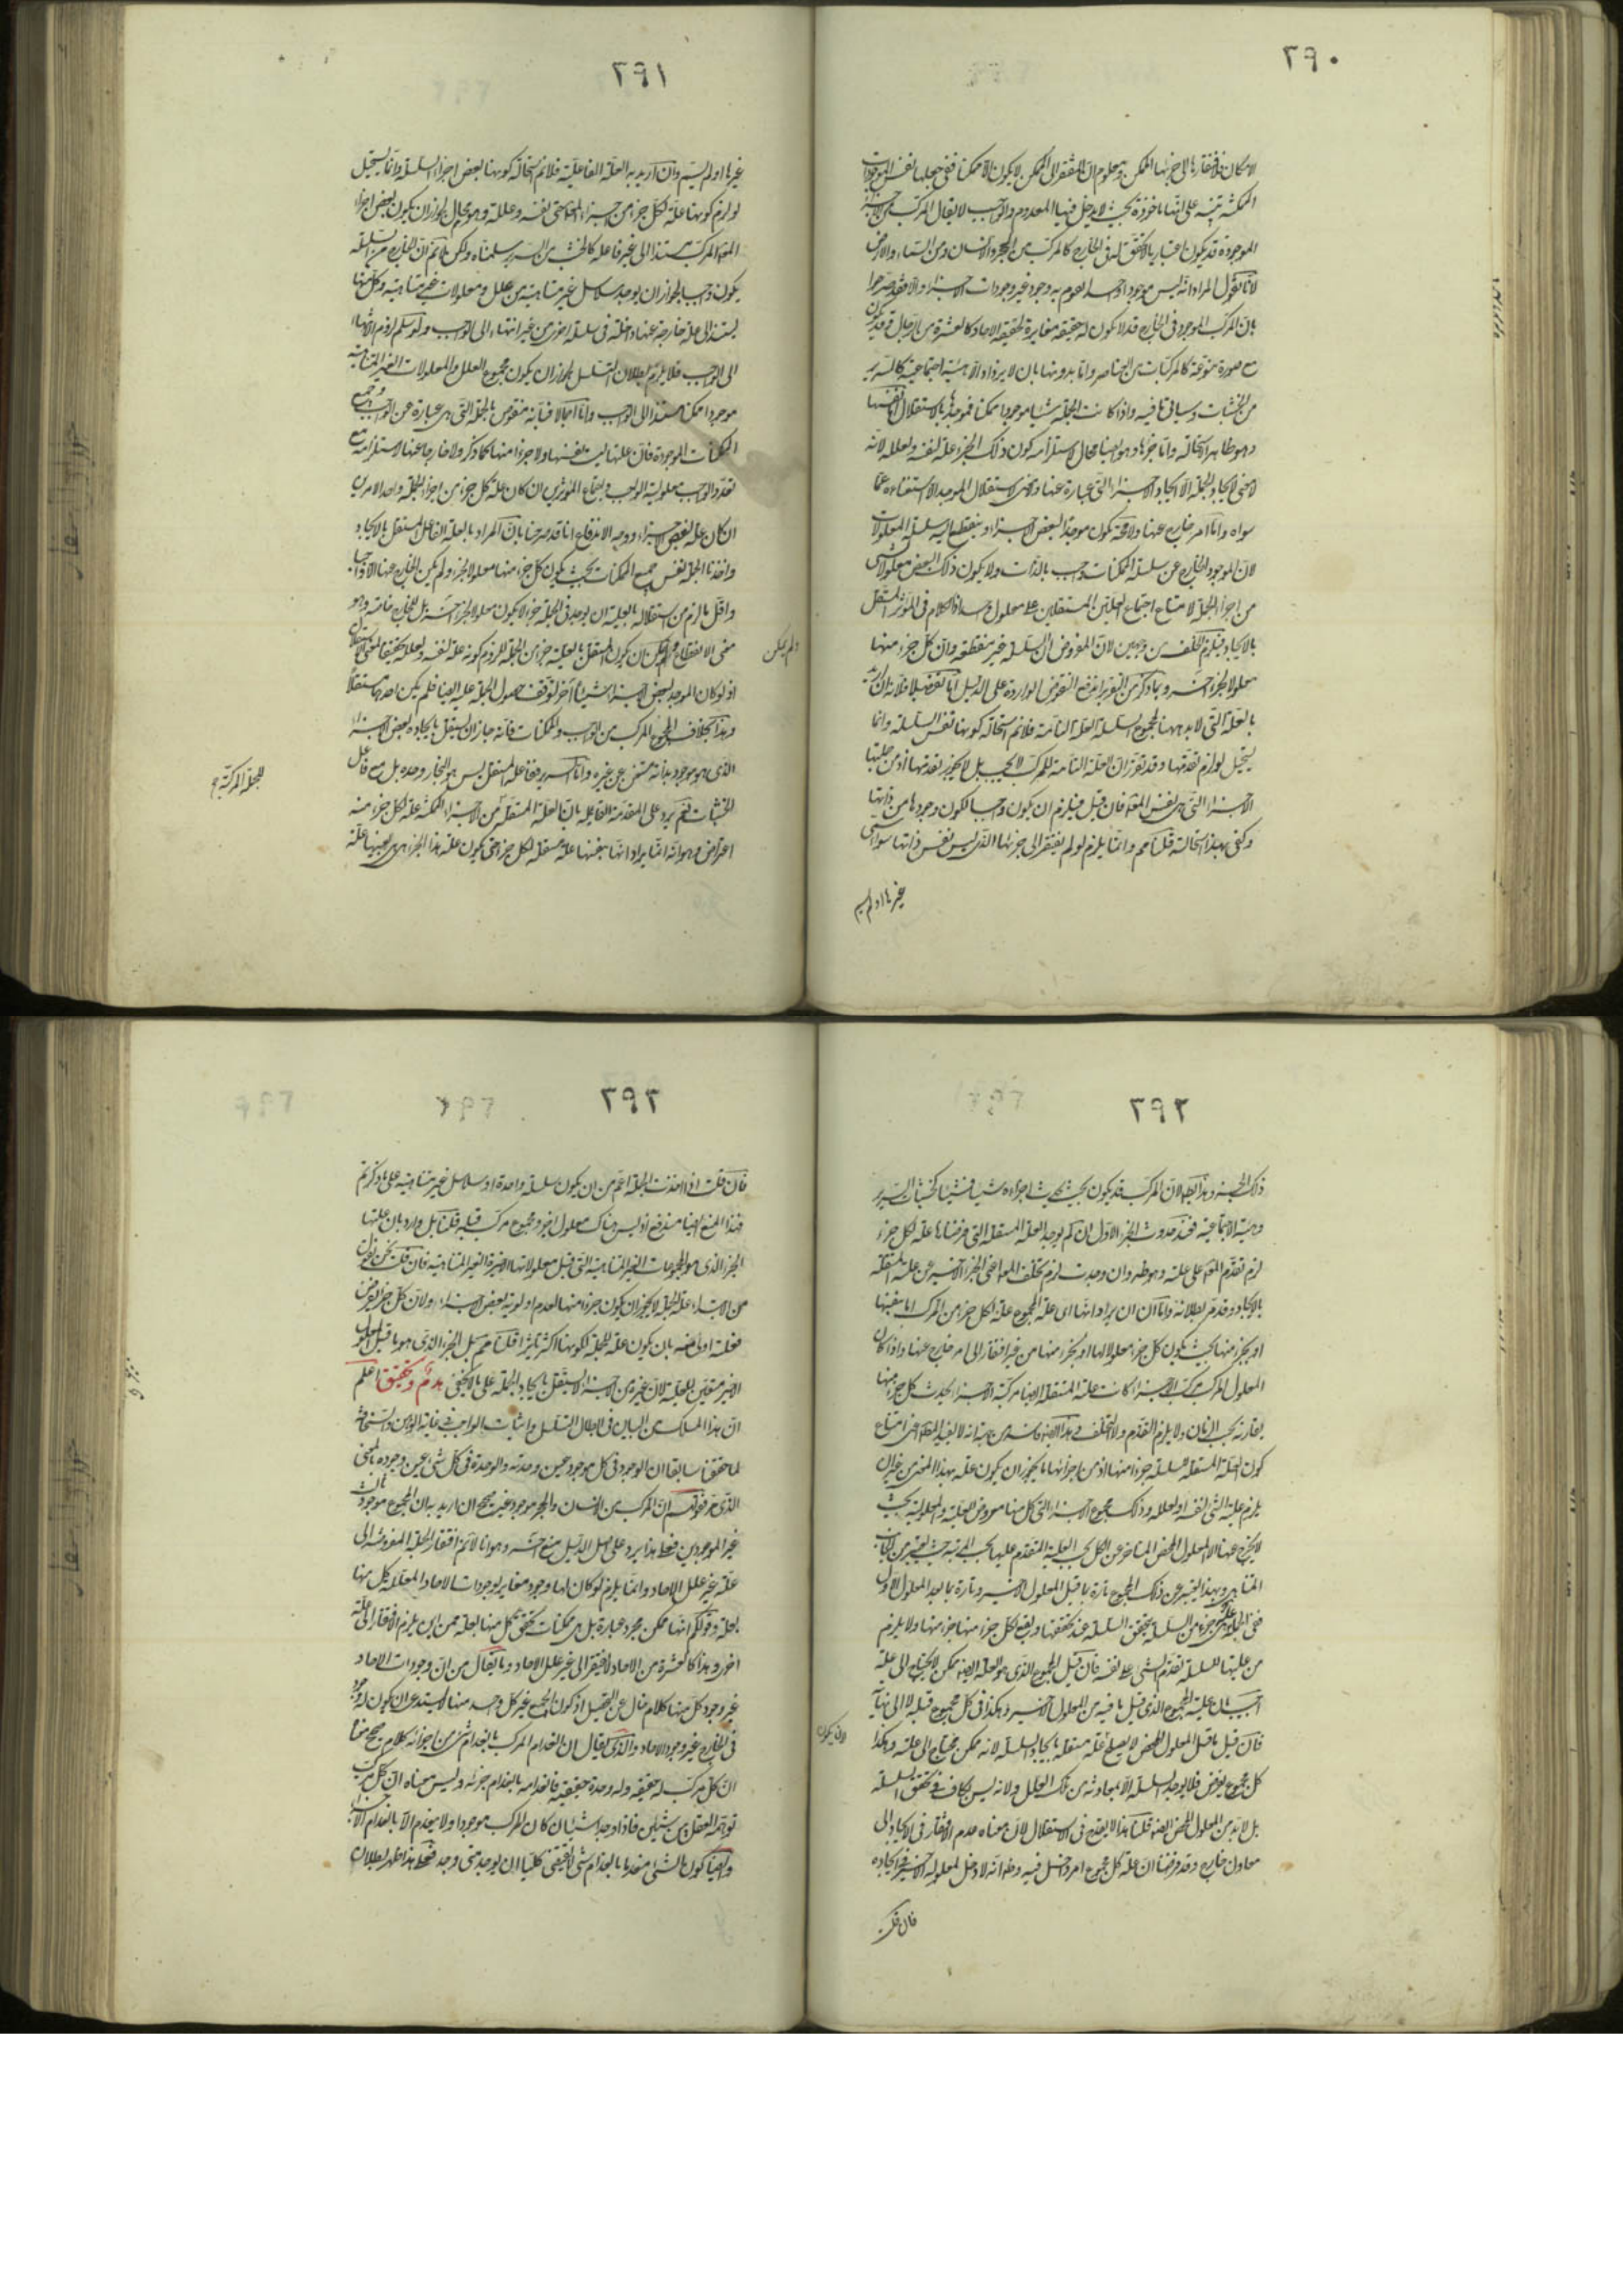 ٢٩٠
الامكان فافتقارها الى جزئها الممكن ومعلوم ان المفتقر الى الممكن لا يكون الا ممكنا ففى جعلها نفس الموجودات
الممكنة تنبيه على انها مأخوذة بحيث لا يدخل فيها المعدوم والواجب لا يقال المركب من الاجزاء
الموجودة قد يكون اعتباريا لا تحقق له فى الخارج كالمركب من الحجر والانسان ومن السماء والارض
لانا نقول المراد انه ليس موجودا واحدا يقوم به وجود غير وجودات الاجزاء والا فقد صرحوا
بان المركب الموجود فى الخارج قد لا يكون له حقيقة مغايرة لحقيقة الاحاد كالعشرة من الرجال وقد يكون
مع صورة منوعة كالمركبات من العناصر واما بدونها بان لا يزداد الا هيئة اجتماعية كالسرير
من الخشبات وسياتى ما فيه واذا كانت الجملة شيئا موجودا ممكنا فموجدها بالاستقلال اما نفسها
وهو ظاهر الاستحالة واما جزءها وهو ايضا محال لاستلزامه كون ذلك الجزء علة لنفسه ولعلله لانه
لا معنى لايجاد الجملة الا ايجاد الاجزاء التى عبارة عنها ولا معنى لاستقلال الموجد الا استغناءه عما
سواه واما امر خارج عنها ولا محة يكون موجدا لبعض الاجزاء وينقطع اليه سلسلة المعلولات
لان الموجود الخارج عن سلسلة الممكنات واجب بالذات ولا يكون ذلك البعض معلولا لشئ
من اجزاء الجملة لامتناع اجتماع العلتين المستقلتين على معلول واحد اذ الكلام فى المؤثر المستقل
بالايجاد فيلزم الخلف من وجهين لان المفروض ان السلسلة غير منقطعة وان كل جزء منها
معلول لجزء اخر وبما ذكر من التقرير اندفع النقوض الواردة على الدليل اما تفصيلا فلانه ان اريد
بالعلة التى لابد ههنا لمجموع السلسلة العلة التامة فلا نم استحالة كونها نفس السلسلة وانما
يستحيل لو لزم تقدمها وقد تقرر ان العلة التامة للمركب لا يجب بل لا يجوز تقدمها اذ من جملتها
الاجزاء التى هى نفس المعلول فان قيل فيلزم ان يكون واجبا لكون وجودها من ذاتها
وكفى بهذا استحالة قلنا مم وانما يلزم لو لم يفتقر الى جزئها الذى ليس نفس ذاتها سواء سمى
غيرها او لم يسم
٢٩١
غيرها او لم يسم وان اريد به العلة الفاعلية فلا نم استحالة كونها بعض اجزاء السلسلة وانما يستحيل
لو لزم كونها علة لكل جزء من اجزاء المعلول حتى نفسه وعلله وهو محال لجواز ان يكون بعض اجزاء
المعلول المركب مستندا الى غير فاعله كالخشب من السرير سلمناه ولكن لا نم ان الخارج من السلسلة
يكون واجبا لجواز ان يوجد سلاسل غير متناهية من علل ومعلولات غير متناهية وكل منها
يستند الى علة خارجة عنها داخلة فى سلسلة اخرى من غير انتهاء الى الواجب ولو سلم لزوم الانتهاء
الى الواجب فلا يلزم بطلان التسلسل لجواز ان يكون مجموع العلل والمعلولات الغير المتناهية
موجودا ممكنا مستندا الى الواجب واما اجمالا فبانه منقوض بالجملة التى هى عبارة عن الواجب وجميع
الممكنات الموجودة فان علتها ليست نفسها ولا جزءا منها كما ذكر ولا خارجا عنها لاستلزامه مع
تعدد الواجب معلولية الواجب واجتماع المؤثرين ان كان علة لكل جزء من اجزاء الجملة واحد الامرين
ان كان علة لبعض الاجزاء ووجه الاندفاع انا قد صرحنا بان المراد بالعلة الفاعل المستقل بالايجاد
واخذنا الجملة نفس جميع الممكنات بحيث يكون كل جزء منها معلولا لجزء ولم يكن الخارج عنها الا واجبا
واقل ما لزم من استقلاله بالعلية ان يوجد فى الجملة جزء لا يكون معلولا لجزء اخر بل للخارج خاصة وهو
معنى الانقطاع ولم يمكن ان يكون المستقل بالعلية جزء من الجملة للزوم كونه علة لنفسه ولعلله تحقيقا لمعنى الاستقلال
ولم يمكن
اذ لو كان الموجد لبعض الاجزاء شيئا آخر لتوقف حصول الجملة عليه ايضا فلم يكن احدهما مستقلا
وهذا بخلاف المجموع المركب من الواجب والممكنات فانه جاز ان يستقل بايجاده بعض الاجزاء
الذى هو موجود بذاته مستغن عن غيره واما السرير ففاعله المستقل ليس هو النجار وحده بل مع فاعل
للجملة المركبة
الخشبات نعم يرد على المقدمة القائلة بان العلة المستقلة من الاجزاء الممكنة علة لكل جزء منه
اعتراض وهو انه اما يراد انها بنفسها علة مستقلة لكل جزء حتى يكون علة هذا الجزء هى بعينها علة
٢٩٢
ذلك الجزء وهذا بط لان المركب قد يكون بحيث يحدث اجزاءه شيئا فشيئا كخشبات السرير
وهيئة الاجتماعية فعند حدوث الجزء الاول ان لم يوجد العلة المستقلة التى فرضناها علة لكل جزء
لزم تقدم المعلول على علته وهو ظ وان وجدت لزم تخلف المعلول اعنى الجزء الاخير عن علته المستقلة
بالايجاد وقد مر بطلانه واما ان يراد انها اى علة المجموع علة لكل جزء من المركب اما بنفسها
او بجزء منها بحيث يكون كل جزء معلولا لها او لجزء منها من غير افتقار الى امر خارج عنها واذا كان
المعلول المركب مركب الاجزاء كانت علته المستقلة ايضا مركبة الاجزاء يحدث كل جزء منها
بمقارنة بحسب الزمان ولا يلزم التقدم ولا التخلف وهذا ايضا فاسد من جهة انه لا يفيد المط اعنى امتناع
كون العلة المستقلة للسلسلة جزءا منها اذ من اجزائها ما يجوز ان يكون علة بهذا المعنى من غير ان
يلزم علية الشئ لنفسه او لعلله وذلك مجموع الاجزاء التى كل منها معروض للعلية والمعلولية بحيث
لا يخرج عنها الا المعلول المحض المتاخر عن الكل بحسب العلية المتقدم عليها بحسب الرتبة حيث يعتبر من الجانب
المتناهى وبهذا يعتبر عن ذلك المجموع تارة بما قبل المعلول الاخير وتارة بما بعد المعلول الاول
ففى الجملة هى جزء من السلسلة يتحقق السلسلة عند تحققها ويقع لكل جزء منها جزء منها ولا يلزم
من عليتها للسلسلة تقدم الشئ على نفسه فان قيل المجموع الذى هو العلة ايضا ممكن لا يحتاج الى علة
اجيب بان علته المجموع الذى قبل ما فيه من المعلول الاخير وهكذا فى كل مجموع قبله لا الى نهاية
فان قيل ما قبل المعلول المحض لا يصلح علة مستقلة بايجاد السلسلة لانه ممكن محتاج الى علته وهكذا
كل مجموع يفرض فلا يوجد السلسلة الا بمعاونة من تلك العلل ولانه ليس بكاف فى تحقق السلسلة
بل لابد من المعلول المحض ايضا قلنا هذا لا يقدح فى الاستقلال لان معناه عدم الافتقار فى الايجاد الى
معاون خارج وقد فرضنا ان علة كل مجموع امر داخل فيه وظ انه لا دخل لمعلوله الاخير فى ايجاده
فان قلت
٢٩٣
فان قلت اذا اخذت الجملة اعم من ان يكون سلسلة واحدة او سلاسل غير متناهية على ما ذكرتم
فهذا المنع ايضا مندفع اذ ليس هناك معلول اخير ومجموع مركب قبله قلنا بل وارد بان علتها
الجزء الذى هو المجموعات الغير المتناهية التى قبل معلولاتها الاخيرة الغير المتناهية فان قلت نحن نقول
من الابتداء علة الجملة لا يجوز ان يكون جزءا منها لعدم اولوية بعض الاجزاء ولان كل جزء يفرض
فعلته اولى منه بان يكون علة للجملة لكونها اكثر تاثيرا قلنا مم بل الجزء الذى هو ما قبل المعلول
الاخير متعين للعلية لان غيره من الاجزاء لا يستقل بايجاد الجملة على ما لا يخفى هدم وتحقيق اعلم
ان هذا المسلك من البيان فى ابطال التسلسل واثبات الواجب فى غاية الوهن والسخافة
لما حققنا سابقا ان الوجود فى كل موجود عين وحدته والوحدة فى كل شئ عين وجوده بالمعنى
الذى مر فقولهم ان المركب من الانسان والحجر موجود غير صحيح ان اريد به ان المجموع موجود ثالث
غير الموجودين فعلى هذا يرد على اصل الدليل منع اخر وهو انا لا نم افتقار الجملة المفروضة الى
علة غير علل الاحاد وانما يلزم لو كان لها وجود مغاير لوجودات الاحاد المعللة كل منها
بعلة وقولكم انها ممكن مجرد عبارة بل هى ممكنات تحقق كل منها بعلة فمن اين يلزم الافتقار الى علة
اخرى وهذا كالعشرة من الاحاد لا يفتقر الى غير علل الاحاد وما يقال من ان وجودات الاحاد
غير وجود كل منها كلام خال عن التحصيل اذ كون الجميع غير كل واحد منها لا يستدعى ان يكون له وجود
فى الخارج غير وجود الاحاد والذى يقال ان انعدام المركب بانعدام شئ من اجزائه كلام صحيح معناه
ان كل مركب له حقيقة وله وحدة حقيقية فانعدامه بانعدام جزئه وليس معناه ان كل مركب
توهمه العقل من شيئين فاذا وجد الشيئان كان المركب موجودا ولا ينعدم الا بانعدام الاجزاء
وايضا كون الشئ منعدما بانعدام شئ لا يقتضى كليا ان يوجد متى وجد فعلى هذا ظهر بطلان